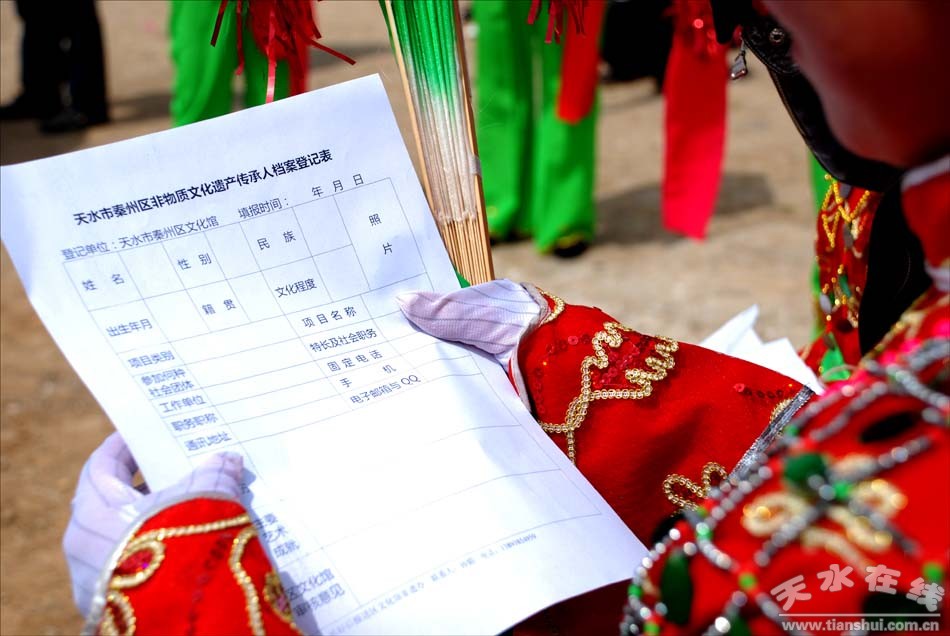 天水市秦州区非物质文化遗产传承人档案登记表
登记单位：天水市秦州区文化馆 填报时间： 年 月 日
姓名 性别 民族 照片
出生年月 籍贯 文化程度
项目类别 项目名称
参加何种社会团体 特长及社会职务
工作单位 固定电话
职务职称 手机
通讯地址 电子邮箱与QQ
主要
艺术
成就
区文化馆
审核意见
天水在线
www.tianshui.com.cn